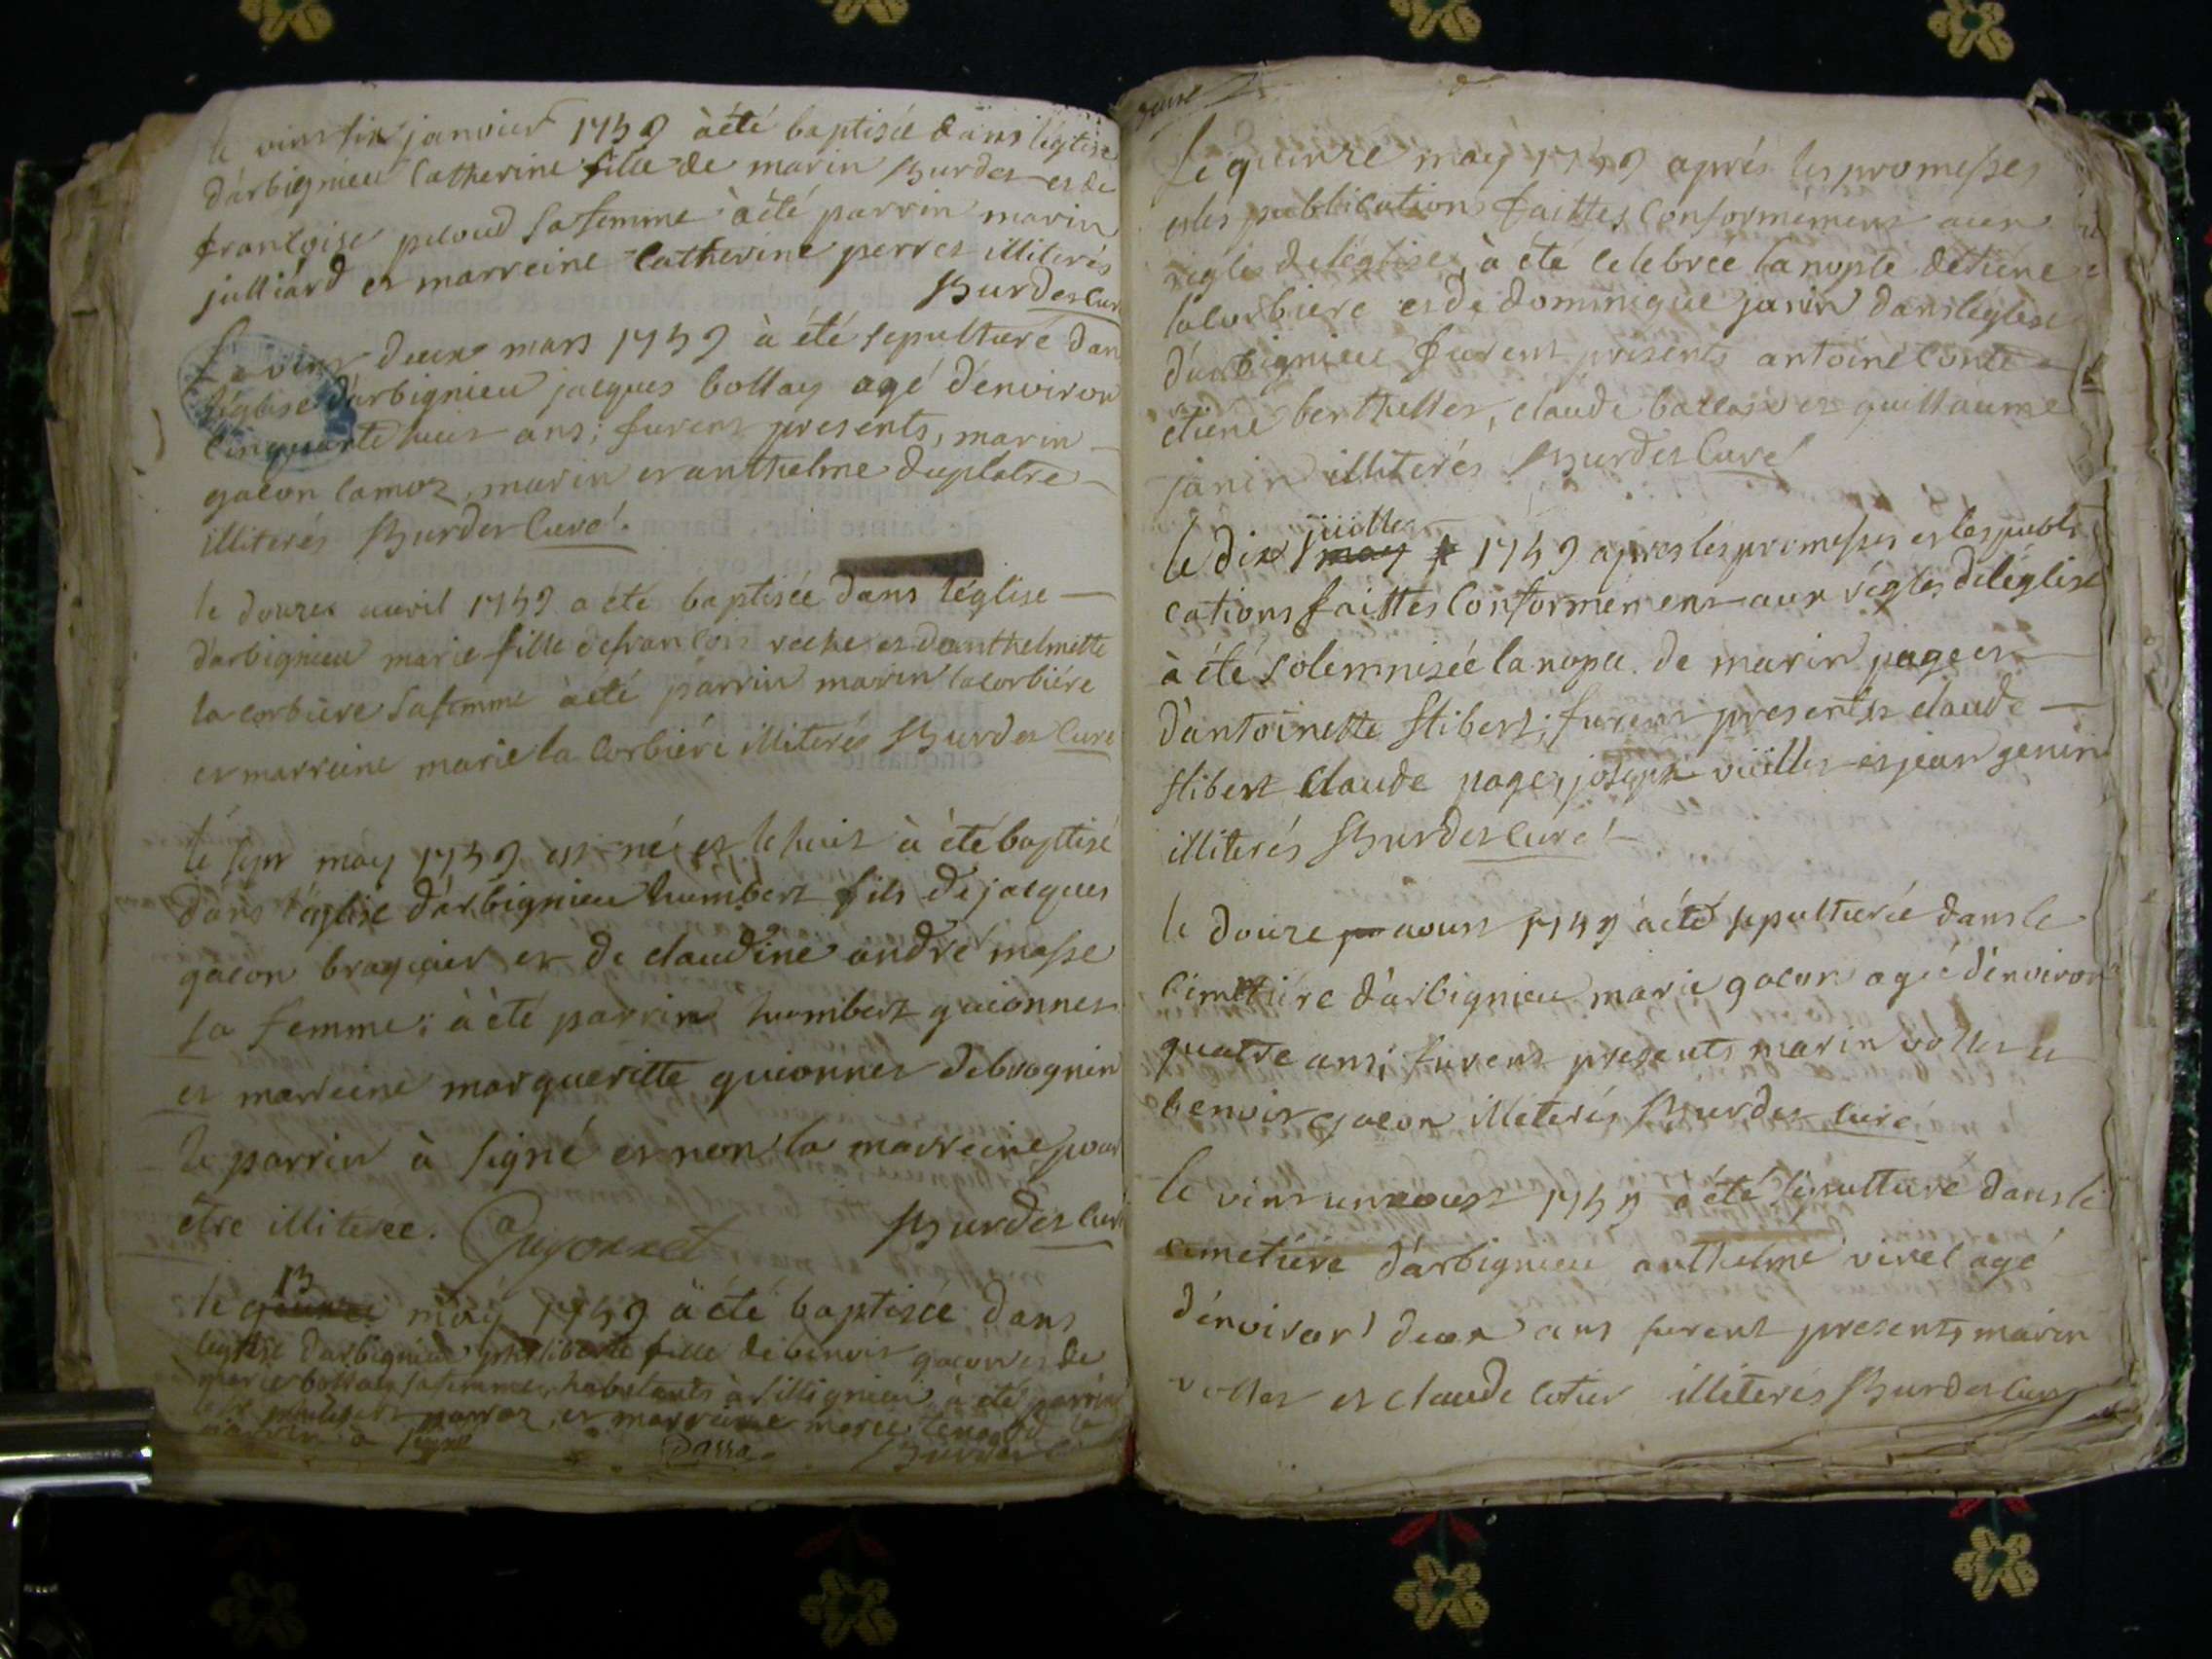 le vint six janvier 1759 à été baptisée dans léglise
d'arbignieu Catherine fille de marin Burdet et de
françoise peloud sa femme à été parrin marin
julliard et marreine Catherine perret illiterés
Burdet Curé
Le vint deux mars 1759 à été sepulturé dan
l'église d'arbignieu jacques bollay agé d'environ
Cinquante huit ans; furent presents, marin
gacon lamoz, marin et anthelme duplatre
illiterés Burdet Curé.
le douze auril 1759 a été baptisée dans l'église
d'arbignieu marie fille de françois roche et d'anthelmette
la corbiere sa femme à été parrin marin lacorbiére
et marreine marie la Corbiére illiterés Burdet Curé
le sept may 1759 est né et le huit à été baptisé
dans l'église d'arbignieu humbert fils de jacques
gacon braguier et de claudine andré masse
sa femme; à été parrin humbert guionnet
et marreine margueritte guionnet de brognin
le parrin à signé et non la marreine pour
être illiterée. Guyonnet Burdet Curé
13
le quinze may 1759 à été baptisée dans
léglise d'arbignieu philiberte fille de benoit gacon et de
marie bollay sa femme habitants à sillignieu à été parrin
parraz, et marreine marie le
parrin a signé Parra. Burdet
Le quinze may 1759 aprés les promesses
et les publications faittes Conformément aux
régles de léglise, à été celebrée la nopse détiene
lacorbiere et de dominique janin dans léglise
d'arbignieu furent présents antoine Conte
etiene berthellet, claude ballas et guillaume
janin illiterés Burdet Curé
juillet
le dix may 1759 apres les promesses et les publi
cations faittes Conformément aux régles de léglise
à été solemnisée la nopce de marin page et
d'antoinette Stibert; furent presents claude
Stibert Claude page, joseph vüillet et jean genin
illiterés Burdet Curé
le douze aoust 1759 à été sepulturée dans le
cimetiére d'arbignieu marie gacon agée d'environ
quatre ans; furent presents marin vollet et
benoit gacon illiterés Burdet Curé
le vint un aoust 1759 a été sepulturé dans le
cimetiére d'arbignieu anthelme virel agé
d'environ deux ans furent presents marin
vollet et claude cotier illiterés Burdet Curé